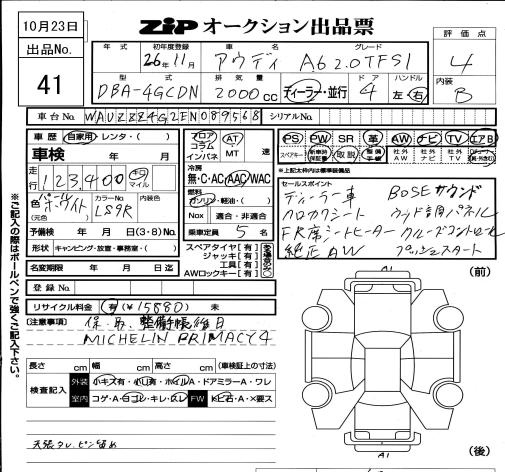 10月23日
ZiP オークション出品票
出品No.
41
年式 初年度登録 車名 グレード
26年11月 アウディ A6 2.0TFSI
評価点
4
型式 排気量 ドア ハンドル
DBA-4GCDN 2000cc ディーラー・並行 4 左・右
内装
B
車台No. WAUZZZ4G2EN089568 シリアルNo.
車歴 自家用・レンタ・( )
車検 年 月
走行 123,400 キロ マイル
色 パールホワイト (元色) カラーNo. LS9R 内装色
予備検 年 月 日(3・8)No.
形状 キャンピング・放置・事務室・( )
名変期限 年 月 日迄
登録No.
フロア コラム インパネ AT MT 速
冷房 無・C・AC・AAC・WAC
燃料 ガソリン・軽油・( )
Nox 適合・非適合
乗車定員 5 名
スペアタイヤ[有]
ジャッキ[有]
工具[有]
AWロックキー[有]
PS PW SR 革 AW ナビ TV エアB
スペアキー 新車時保証書 取説 整備手帳 社外AW 社外ナビ 社外TV
セールスポイント
ディーラー車 BOSEサウンド
ハロカワシート ウッド調パネル
FR席シートヒーター クルーズコントロール
純正AW プッシュスタート
リサイクル料金 有(¥15880) 未
(注意事項) 保・取・整備手帳後日
MICHELIN PRIMACY4
長さ cm 幅 cm 高さ cm (車検証上の寸法)
検査記入 外装 小キズ有・小凹有・ホイルA・ドアミラーA・ワレ
室内 コゲ・A・ヨゴレ・キレ・スレ FW トビ石・A・×要ス
天張タレ、ピン留め
※ご記入の際はボールペンで強くご記入下さい。
(前)
A1
A1
(後)